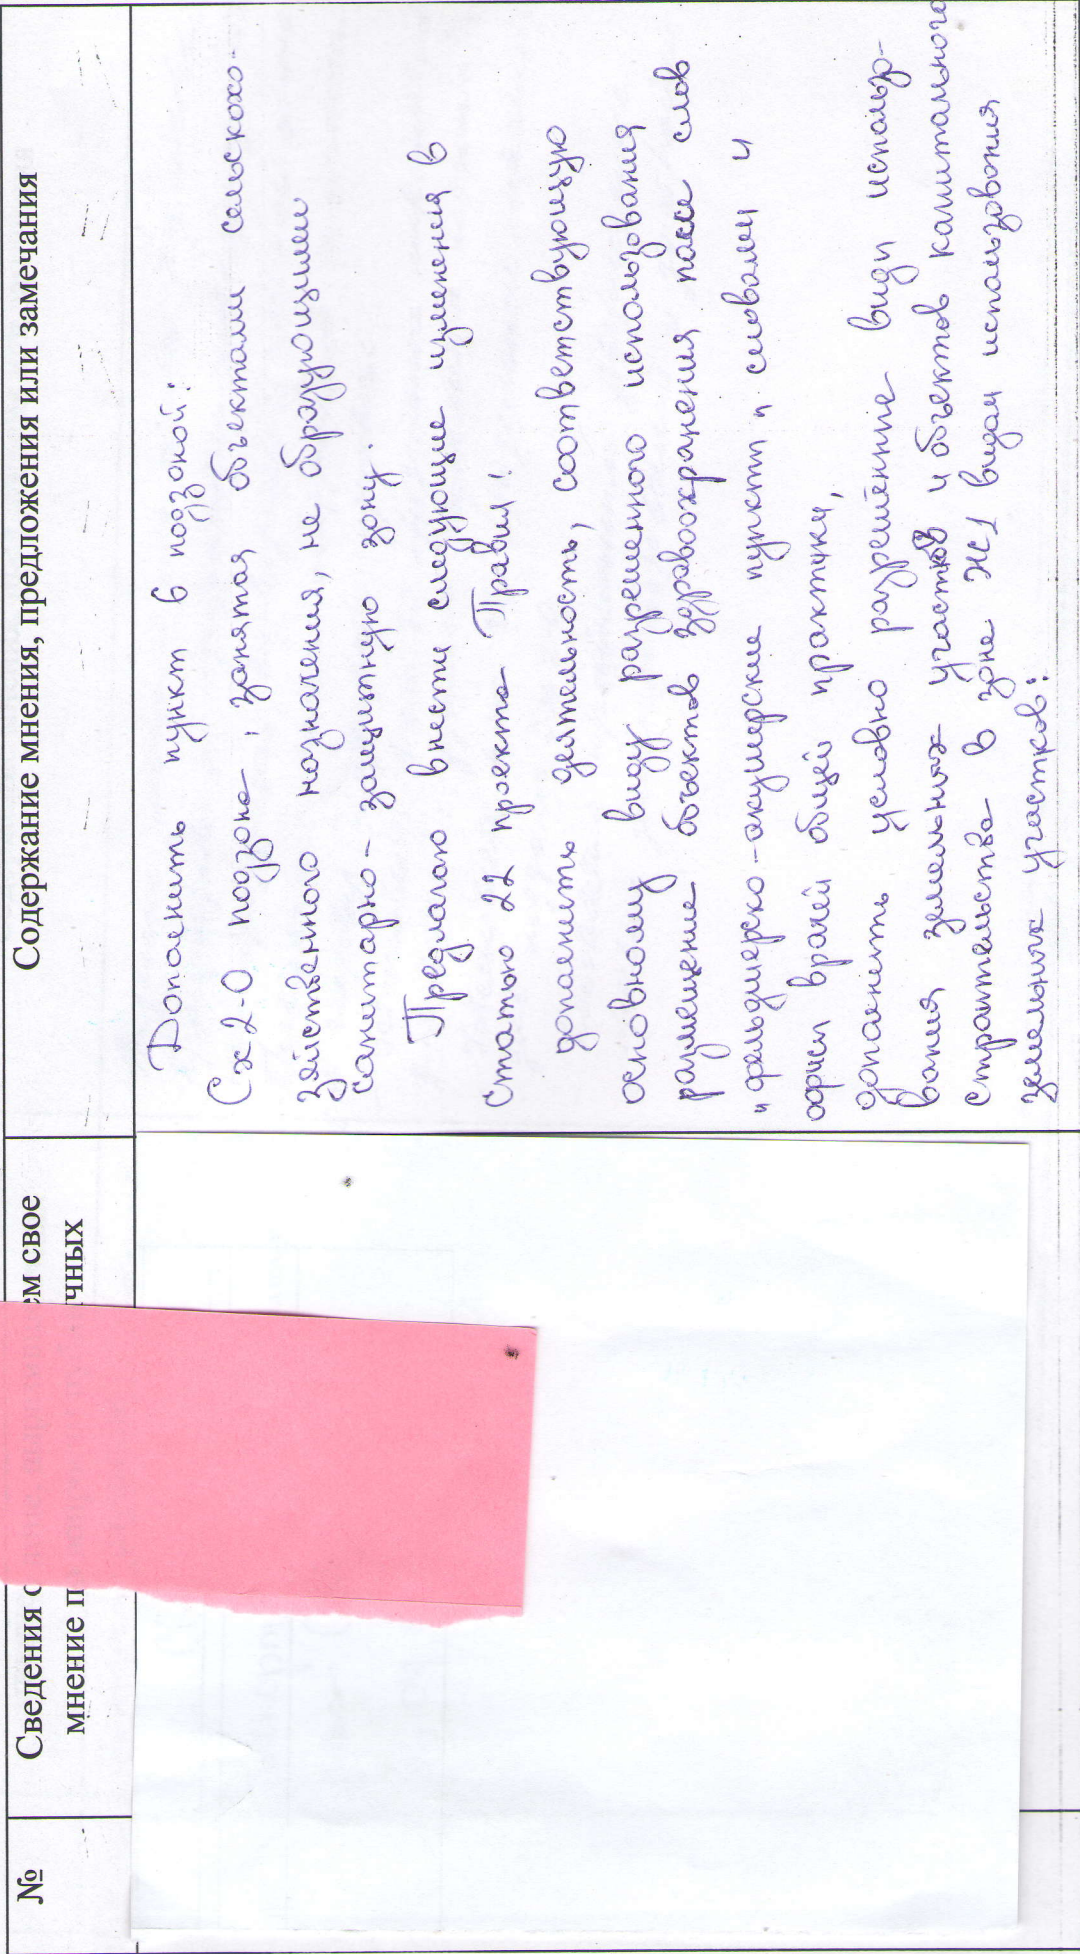 №
Сведения о ем свое
мнение п чных
Содержание мнения, предложения или замечания
Дополнить пункт в подзоной:
Сх2-О подзона, занятая объектами сельскохо-
зяйственного назначения, не образующими
санитарно-защитную зону.
Предлагаю внести следующие изменения в
статью 22 проекта Правил:
дополнить деятельность, соответствующую
основному виду разрешенного использования
размещение объектов здравоохранения после слов
"фельдшерско-акушерские пункты" словами и
офисы врачей общей практики,
дополнить условно разрешённые виды использо-
вания земельных участков и объектов капитального
строительства в зоне Ж1 видам использования
земельных участков: